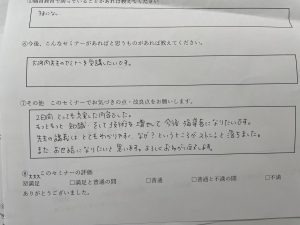 特になし
⑥今後、こんなセミナーがあればと思うものがあれば教えてください。
先生のセミナーを受講したいです。
⑦その他 このセミナーでお気づきの点・改良点をお願いします。
2日間 とても充実した内容でした。
もっともっと知識、そして技術を増やして今後指導者になりたいです。
先生の講義は とてもわかりやすく なぜ?というところが ストンと落ちました。
また お世話になりたいと思います。よろしくお願い致します。
⑧このセミナーの評価
☑満足 □満足と普通の間 □普通 □普通と不満の間 □不満
ありがとうございました。